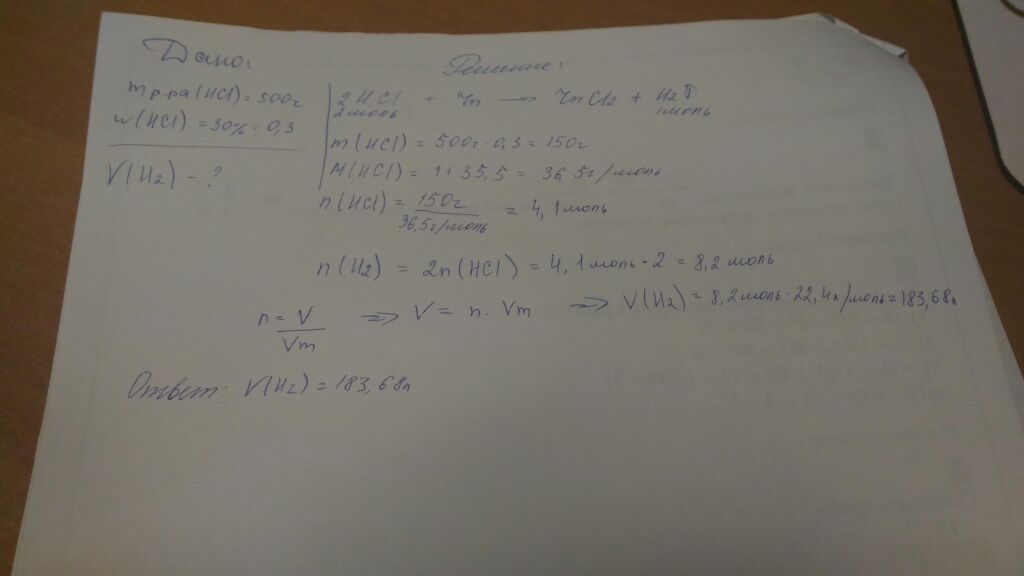 Дано:
Решение:
mр-ра(HCl) = 500г
w(HCl) = 30% = 0,3
V(H2) - ?
2HCl + Zn → ZnCl2 + H2↑
2моль 1моль
m(HCl) = 500г · 0,3 = 150г
M(HCl) = 1 + 35,5 = 36,5г/моль
n(HCl) = 150г / 36,5г/моль = 4,1моль
n(H2) = 2n(HCl) = 4,1моль · 2 = 8,2моль
n = V / Vm => V = n · Vm => V(H2) = 8,2моль · 22,4л/моль = 183,68л
Ответ: V(H2) = 183,68л